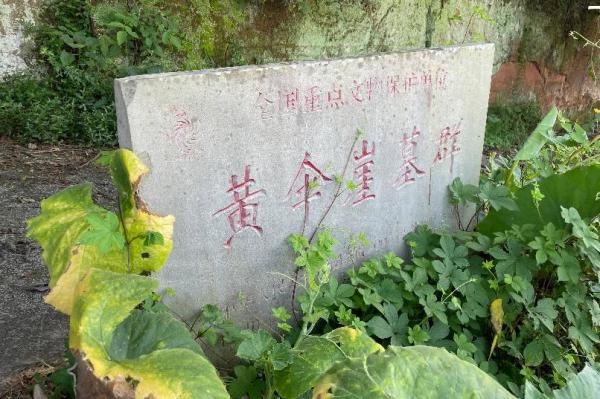 全国重点文物保护单位
黄伞崖墓群